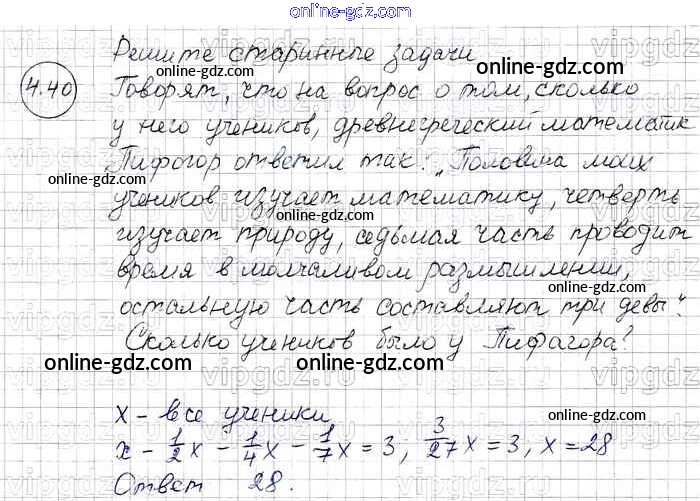 online-gdz.com
Решите старинные задачи
online-gdz.com
4.40
Говорят, что на вопрос о том, сколько
online-gdz.com
у него учеников, древнегреческий математик
online-gdz.com
Пифогор ответил так: „Половина моих
online-gdz.com
учеников изучает математику, четверть
online-gdz.com
изучает природу, седьмая часть проводит
online-gdz.com
время в молчаливом размышлении,
остальную часть составляют три девы".
online-gdz.com
Сколько учеников было у Пифагора?
online-gdz.com online-gdz.com
x - все ученики
online-gdz.com
x - 1/2 x - 1/4 x - 1/7 x = 3; 3/27 x = 3, x = 28
online-gdz.com
Ответ 28.
online-gdz.com